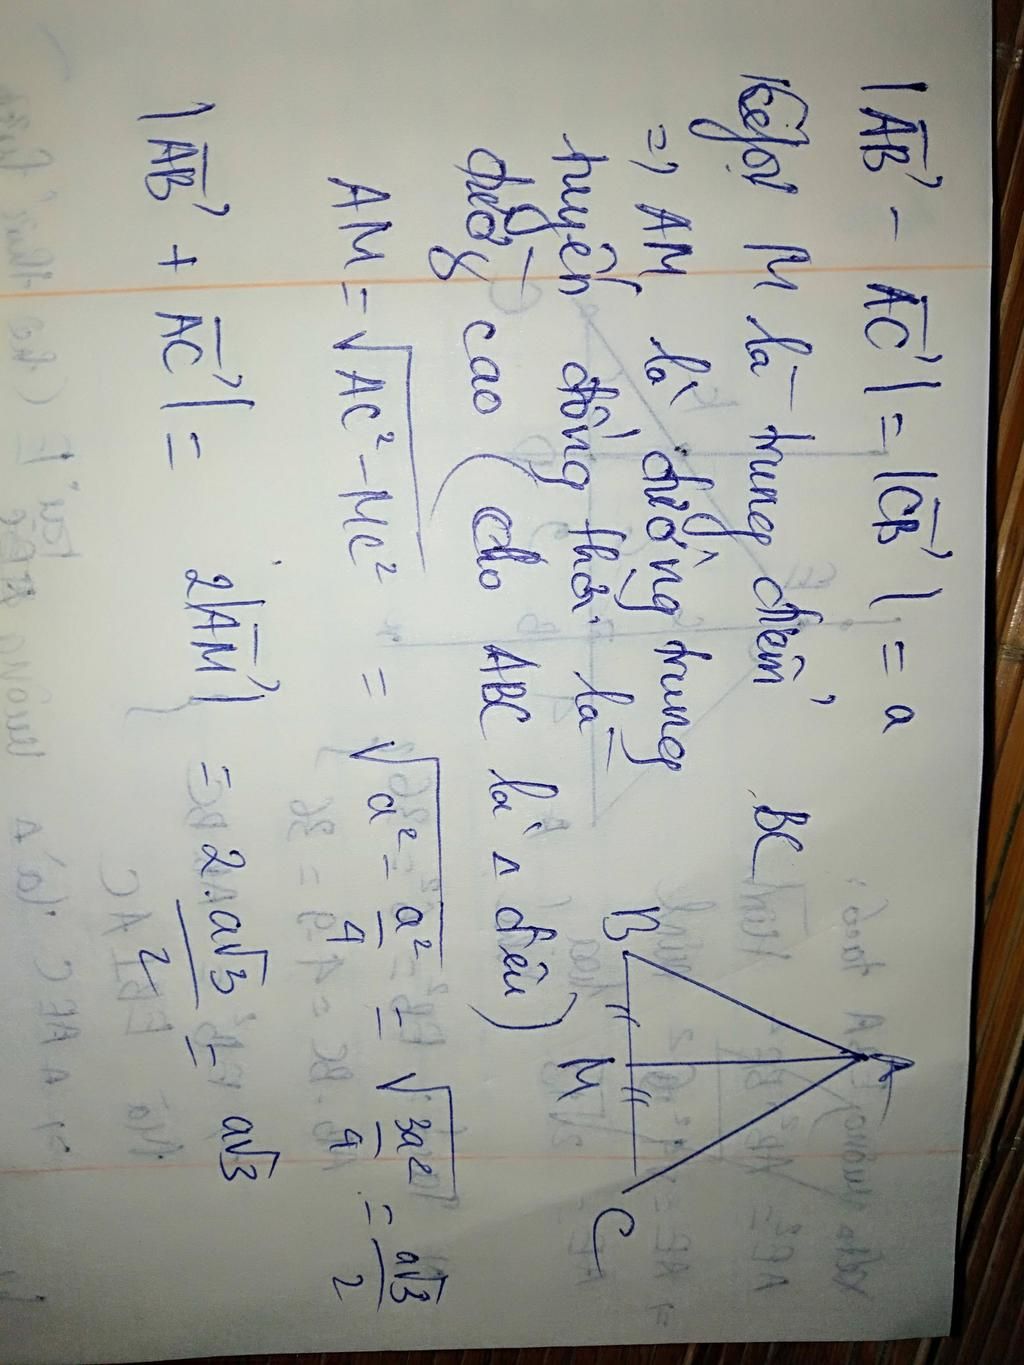 |AB→ - AC→| = |CB→| = a
Gọi M là trung điểm BC
=> AM là đường trung
tuyến đồng thời là
đường cao (cho ABC là Δ đều)
AM = √(AC² - MC²) = √(a² - a²/4) = √(3a²/4) = a√3/2
|AB→ + AC→| = 2|AM→| = 2.a√3/2 = a√3
A
B M C